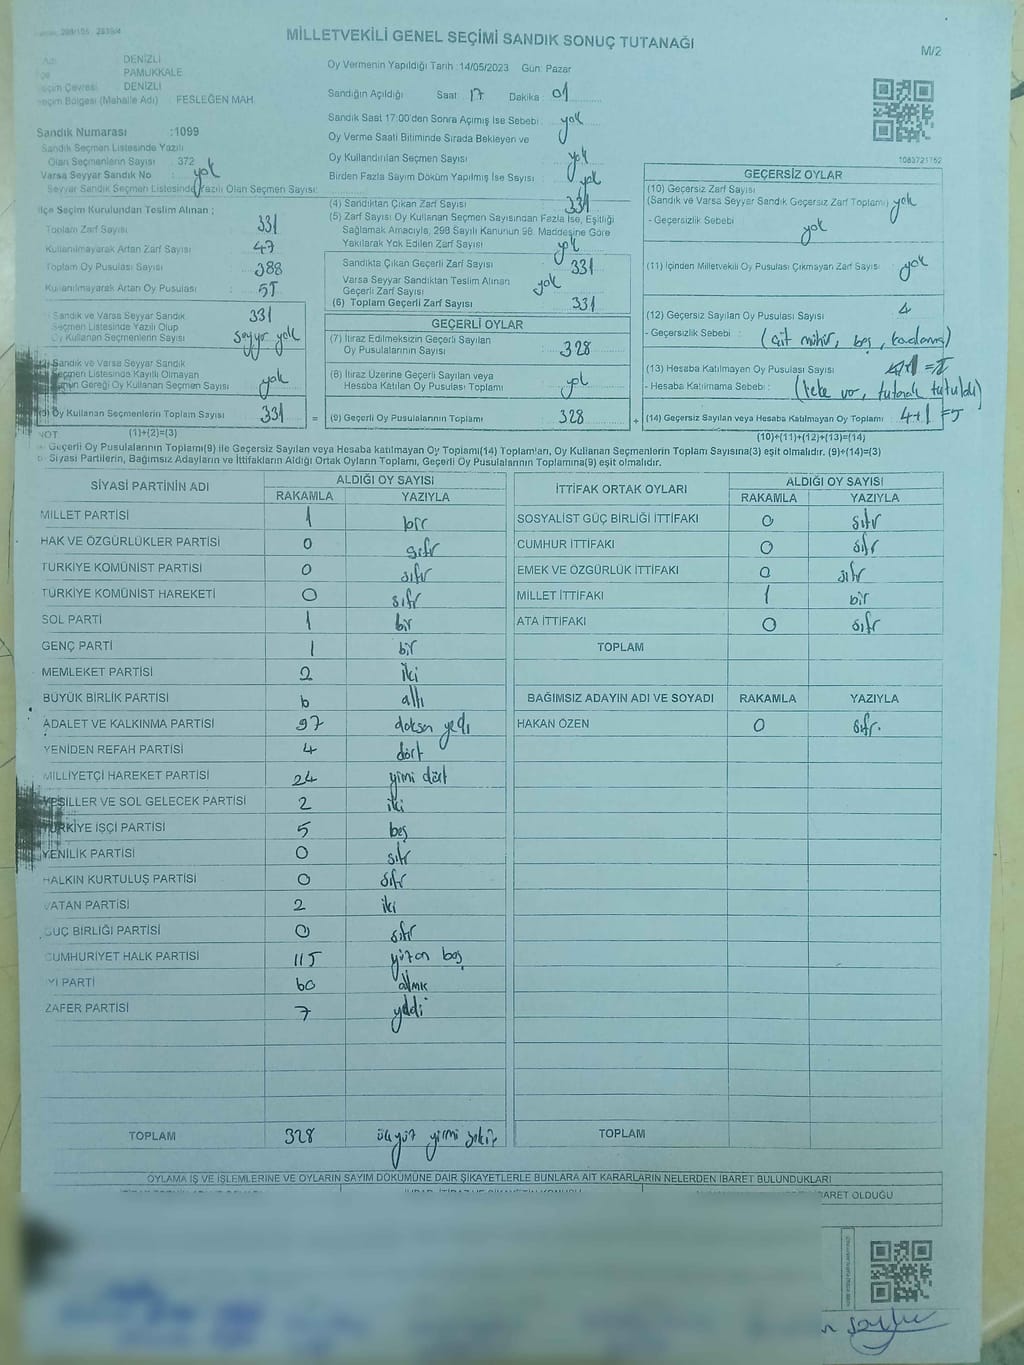 MİLLETVEKİLİ GENEL SEÇİMİ SANDIK SONUÇ TUTANAĞI
M/2
: DENİZLİ
: PAMUKKALE
: DENİZLİ
Seçim Bölgesi (Mahalle Adı) : FESLEĞEN MAH.
Sandık Numarası :1099
Sandık Seçmen Listesinde Yazılı
Olan Seçmenlerin Sayısı : 372
Varsa Seyyar Sandık No yok
Seyyar Sandık Seçmen Listesinde Yazılı Olan Seçmen Sayısı:
Oy Vermenin Yapıldığı Tarih :14/05/2023 Gün: Pazar
Sandığın Açıldığı Saat : 17 Dakika : 01
Sandık Saat 17:00'den Sonra Açımış İse Sebebi : yok
Oy Verme Saati Bitiminde Sırada Bekleyen ve
Oy Kullandırılan Seçmen Sayısı : yok
Birden Fazla Sayım Döküm Yapılmış İse Sayısı : yok
1083721752
İlçe Seçim Kurulundan Teslim Alınan ;
Toplam Zarf Sayısı : 331
Kullanılmayarak Artan Zarf Sayısı : 47
Toplam Oy Pusulası Sayısı : 388
Kullanılmayarak Artan Oy Pusulası : 55
Sandık ve Varsa Seyyar Sandık
Seçmen Listesinde Yazılı Olup
Oy Kullanan Seçmenlerin Sayısı
331
seyyar yok
Sandık ve Varsa Seyyar Sandık
Seçmen Listesinde Kayıtlı Olmayan
Kanun Gereği Oy Kullanan Seçmen Sayısı : yok
(3) Oy Kullanan Seçmenlerin Toplam Sayısı : 331
(1)+(2)=(3)
(4) Sandıktan Çıkan Zarf Sayısı : 331
(5) Zarf Sayısı Oy Kullanan Seçmen Sayısından Fazla İse, Eşitliği
Sağlamak Amacıyla, 298 Sayılı Kanunun 98. Maddesine Göre
Yakılarak Yok Edilen Zarf Sayısı : yok
Sandıkta Çıkan Geçerli Zarf Sayısı : 331
Varsa Seyyar Sandıktan Teslim Alınan
Geçerli Zarf Sayısı : yok
(6) Toplam Geçerli Zarf Sayısı : 331
GEÇERLİ OYLAR
(7) İtiraz Edilmeksizin Geçerli Sayılan
Oy Pusulalarının Sayısı : 328
(8) İtiraz Üzerine Geçerli Sayılan veya
Hesaba Katılan Oy Pusulası Toplamı : yok
= (9) Geçerli Oy Pusulalarının Toplamı : 328
GEÇERSİZ OYLAR
(10) Geçersiz Zarf Sayısı
(Sandık ve Varsa Seyyar Sandık Geçersiz Zarf Toplamı) yok
- Geçersizlik Sebebi : yok
(11) İçinden Milletvekili Oy Pusulası Çıkmayan Zarf Sayısı : yok
(12) Geçersiz Sayılan Oy Pusulası Sayısı : 4
- Geçersizlik Sebebi : (çift mühür, boş, karalama)
(13) Hesaba Katılmayan Oy Pusulası Sayısı
- Hesaba Katılmama Sebebi : (leke var, tutanak tutuldu)
+ (14) Geçersiz Sayılan veya Hesaba Katılmayan Oy Toplamı : 4+1=5
(10)+(11)+(12)+(13)=(14)
NOT
a- Geçerli Oy Pusulalarının Toplamı(9) ile Geçersiz Sayılan veya Hesaba katılmayan Oy Toplamı(14) Toplamları, Oy Kullanan Seçmenlerin Toplam Sayısına(3) eşit olmalıdır. (9)+(14)=(3)
b- Siyasi Partilerin, Bağımsız Adayların ve İttifakların Aldığı Ortak Oyların Toplamı, Geçerli Oy Pusulalarının Toplamına(9) eşit olmalıdır.
SİYASİ PARTİNİN ADI ALDIĞI OY SAYISI
RAKAMLA YAZIYLA
MİLLET PARTİSİ 1 bir
HAK VE ÖZGÜRLÜKLER PARTİSİ 0 sıfır
TÜRKİYE KOMÜNİST PARTİSİ 0 sıfır
TÜRKİYE KOMÜNİST HAREKETİ 0 sıfır
SOL PARTİ 1 bir
GENÇ PARTİ 1 bir
MEMLEKET PARTİSİ 2 iki
BÜYÜK BİRLİK PARTİSİ 6 altı
ADALET VE KALKINMA PARTİSİ 97 doksan yedi
YENİDEN REFAH PARTİSİ 4 dört
MİLLİYETÇİ HAREKET PARTİSİ 24 yirmi dört
YEŞİLLER VE SOL GELECEK PARTİSİ 2 iki
TÜRKİYE İŞÇİ PARTİSİ 5 beş
YENİLİK PARTİSİ 0 sıfır
HALKIN KURTULUŞ PARTİSİ 0 sıfır
VATAN PARTİSİ 2 iki
GÜÇ BİRLİĞİ PARTİSİ 0 sıfır
CUMHURİYET HALK PARTİSİ 115 yüzon beş
İYİ PARTİ 60 altmış
ZAFER PARTİSİ 7 yedi
TOPLAM 328 üçyüz yirmi sekiz
İTTİFAK ORTAK OYLARI ALDIĞI OY SAYISI
RAKAMLA YAZIYLA
SOSYALİST GÜÇ BİRLİĞİ İTTİFAKI 0 sıfır
CUMHUR İTTİFAKI 0 sıfır
EMEK VE ÖZGÜRLÜK İTTİFAKI 0 sıfır
MİLLET İTTİFAKI 1 bir
ATA İTTİFAKI 0 sıfır
TOPLAM
BAĞIMSIZ ADAYIN ADI VE SOYADI RAKAMLA YAZIYLA
HAKAN ÖZEN 0 sıfır.
TOPLAM
OYLAMA İŞ VE İŞLEMLERİNE VE OYLARIN SAYIM DÖKÜMÜNE DAİR ŞİKAYETLERLE BUNLARA AİT KARARLARIN NELERDEN İBARET BULUNDUKLARI
İBARET OLDUĞU